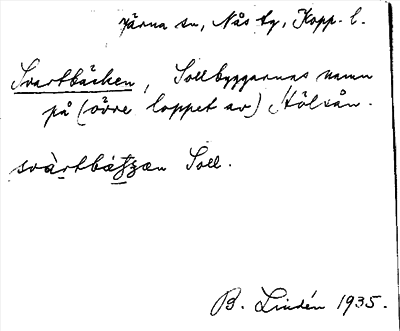 Järna sn, Nås tg, Kopp. l.
Svartbäcken, Sollbyggarnas namn
på (övre loppet av) Hölsån.
svàrtbæ̀ʃʒæn Soll.
B. Lindén 1935.